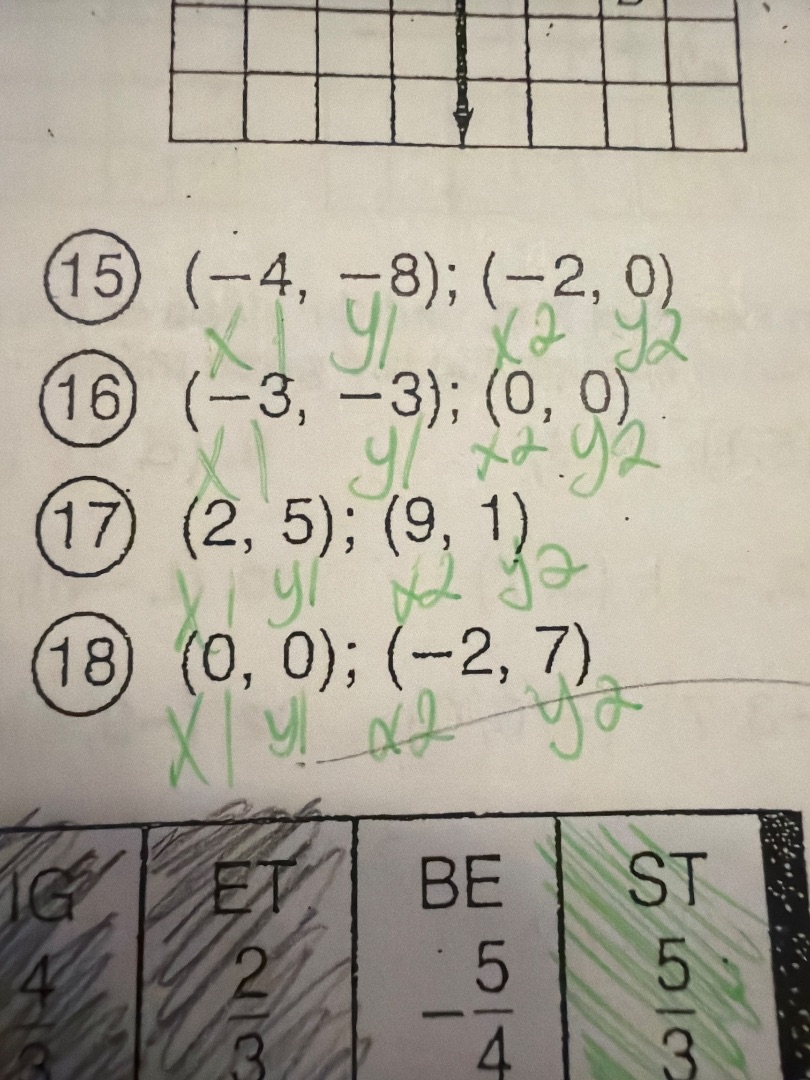 15 (−4, −8); (−2, 0)
x1 y1 x2 y2
16 (−3, −3); (0, 0)
x1 y1 x2 y2
17 (2, 5); (9, 1)
x1 y1 x2 y2
18 (0, 0); (−2, 7)
x1 y1 x2 y2
IG ET BE ST
4/3 2/3 −5/4 5/3